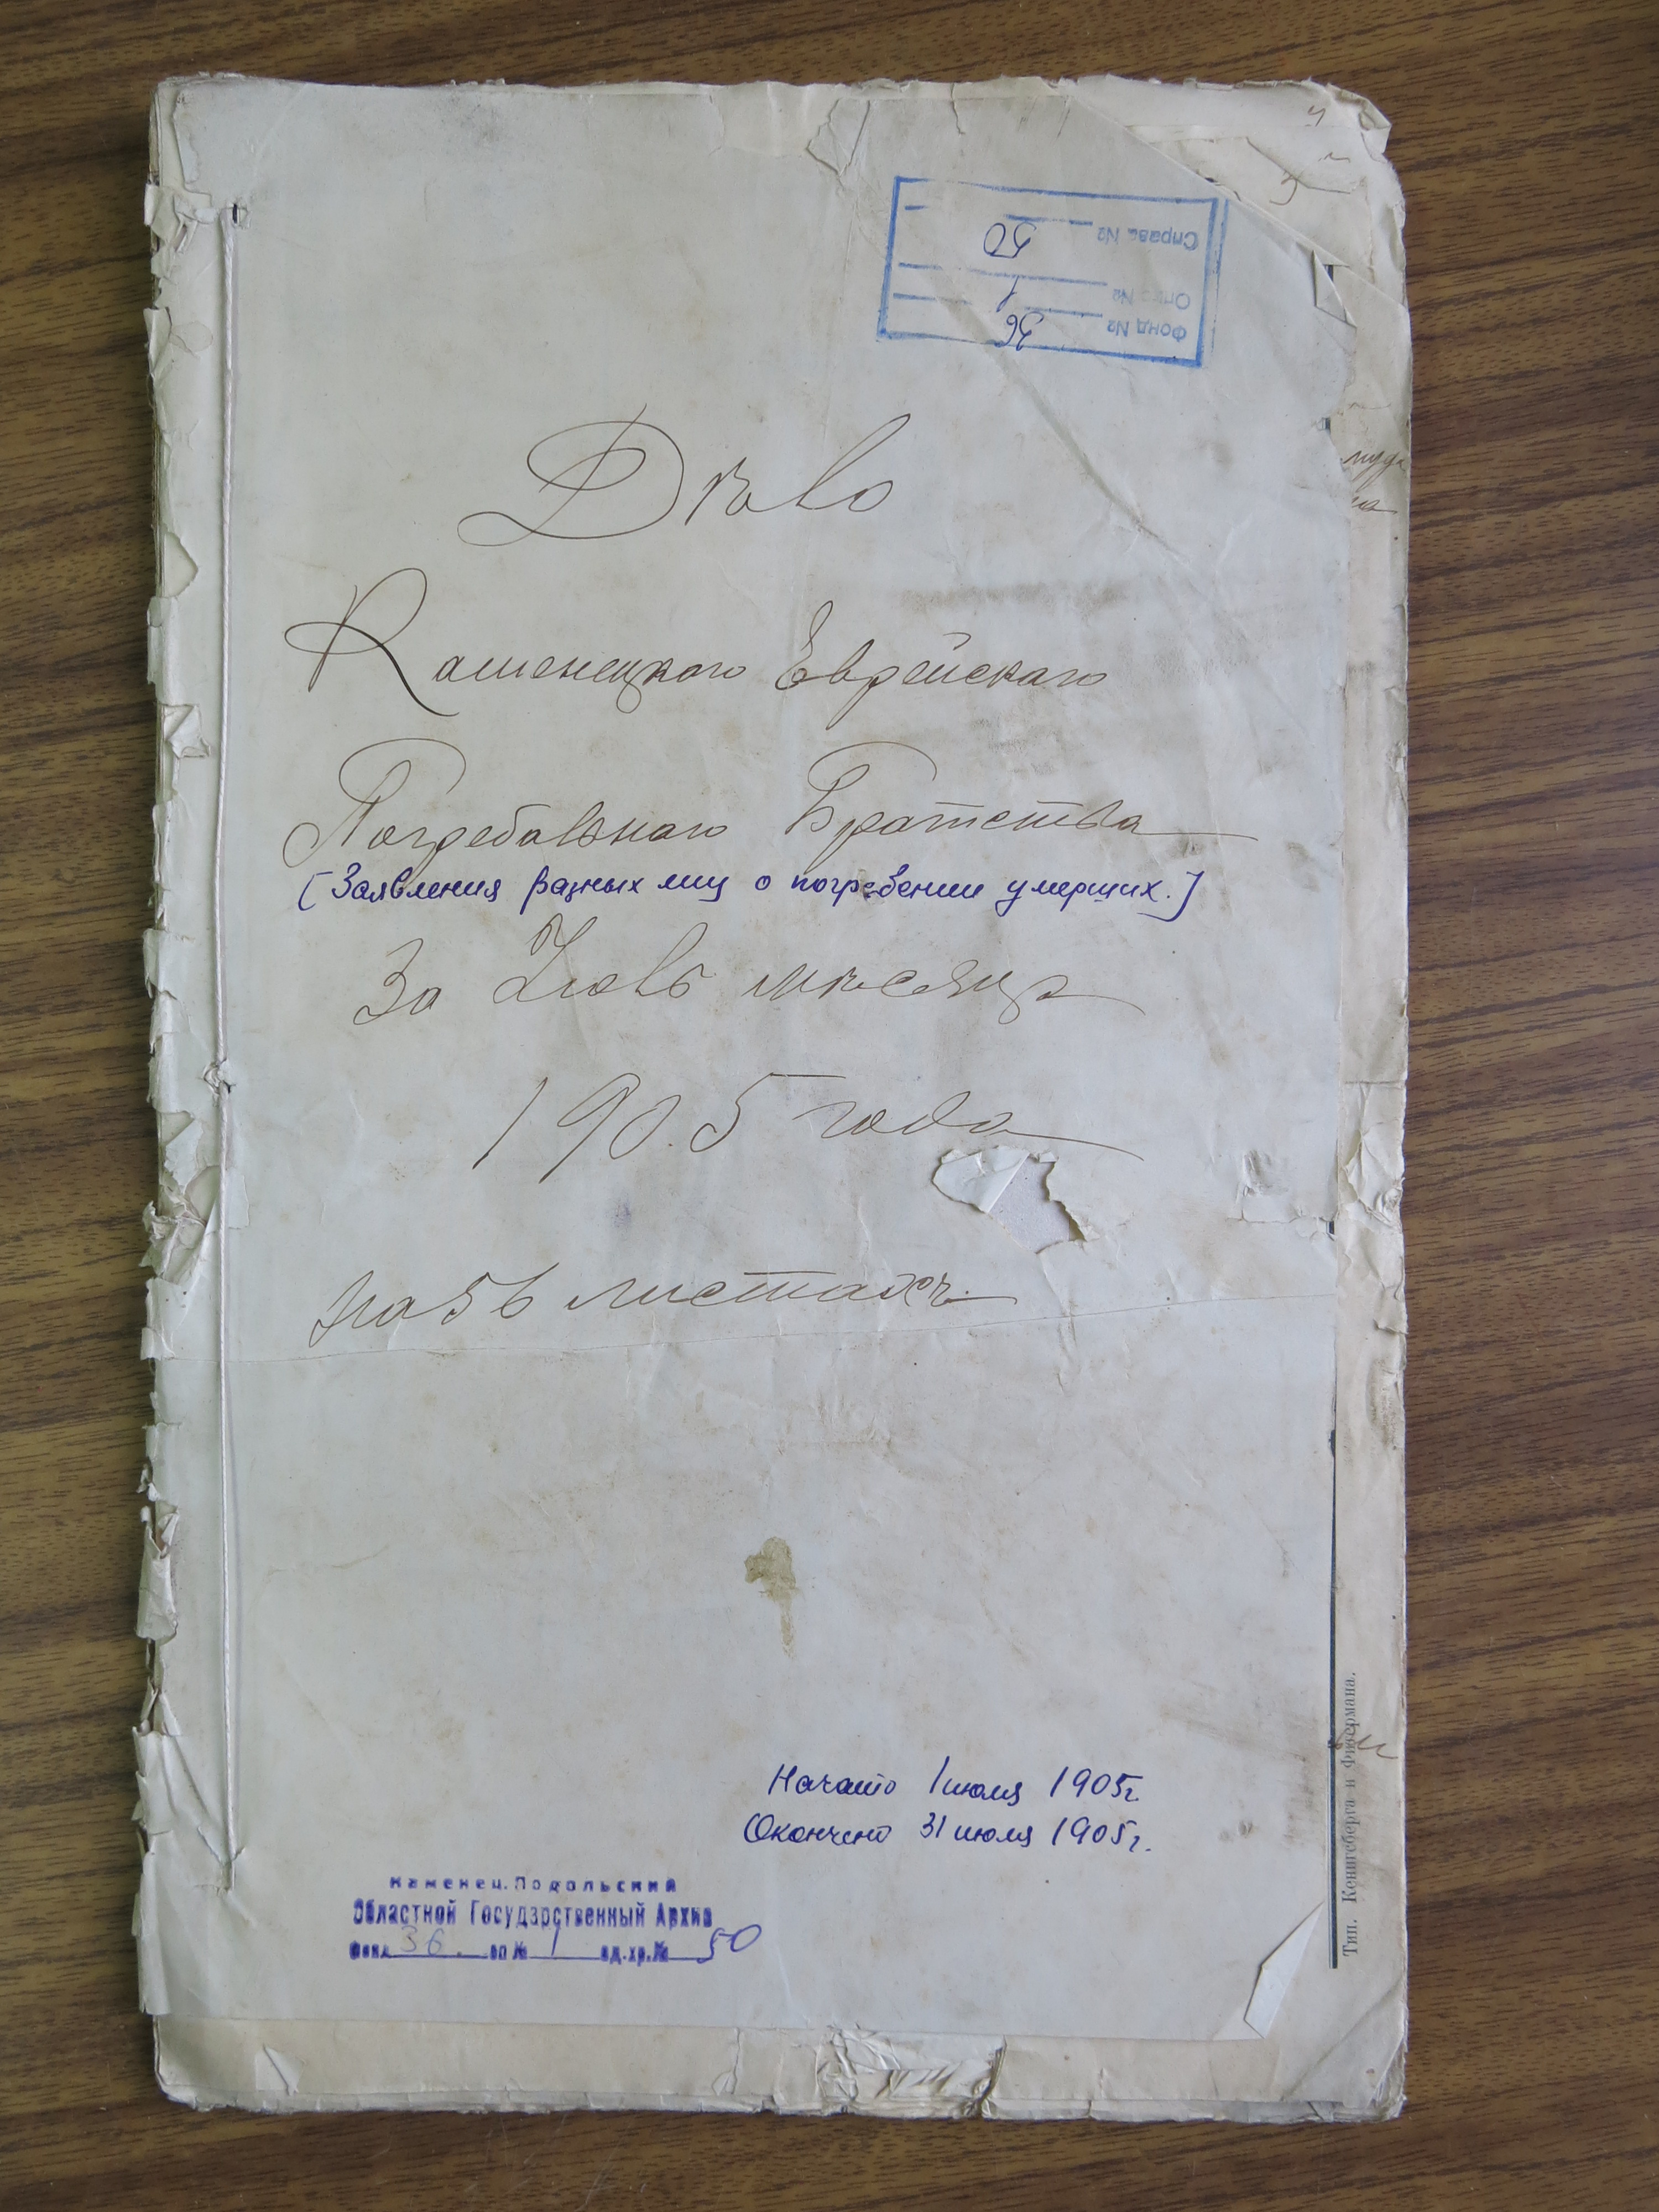 Справа № 50
Опис № 1
Фонд № 36
Дѣло
Каменецкаго Еврейскаго
Погребальнаго Братства
[Заявления разных лиц о погребении умерших.]
За Іюль мѣсяцъ
1905 года
на 56 листахъ
Начато 1 июля 1905г.
Окончено 31 июля 1905г.
Каменец-Подольский
Областной Государственный Архив
Фонд 36. оп № 1 ед.хр.№ 50
Тип. Кенигсберга и Фиермана.